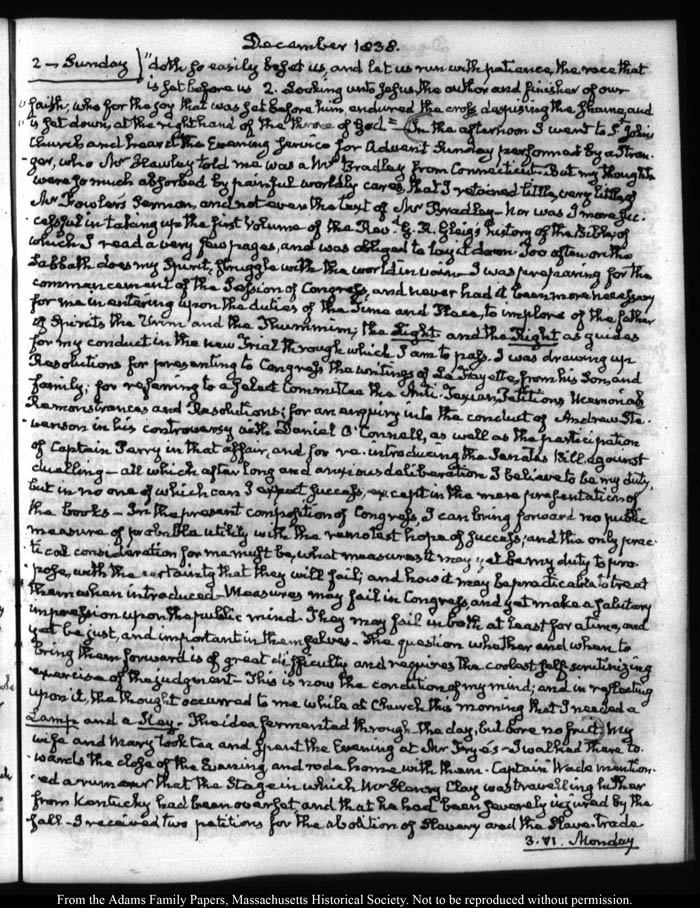 December 1838.
2 – Sunday "doth so easily beset us, and let us run with patience, the race that
is set before us 2. Looking unto Jesus, the author and finisher of our
faith, who for the joy that was set before him, endured the cross despising the shame, and
is set down, at the right hand of the throne of God = In the afternoon I went to St. John's
Church and heard the Evening service for Advent Sunday performed by a stran-
-ger, who Mr Hawley told me was a Mr Bradley from Connecticut. But my thoughts
were so much absorbed by painful worldly cares, that I retained little, very little of
Mr Fowlers Sermon, and not even the text of Mr Bradley – Nor was I more suc-
cessful in taking up the first volume of the Revd. G. R. Gleig's history of the Bible, of
which I read a very few pages, and was obliged to lay it down. Too often on the
Sabbath does my Spirit, struggle with the world in vain – I was preparing for the
commencement of the Session of Congress, and never had it been more necessary
for me in entering upon the duties of the Time and Place, to implore of the father
of Spirits the Urim and the Thummim; the Light and the Right as guides
for my conduct in the new Trial through which I am to pass. I was drawing up
Resolutions for presenting to Congress the writings of La Fayette, from his Son, and
family; for referring to a select Committee the Anti-Texian, Petitions Memorials
Remonstrances and Resolutions; for an enquiry into the conduct of Andrew Ste-
venson in his controversy with Daniel O'Connell, as well as the participation
of Captain Perry in that affair, and for re-introducing the Senates Bill against
duelling – all which after long and anxious deliberation I believe to be my duty,
but in no one of which can I expect success, except in the mere presentation of
the books – In the present composition of Congress, I can bring forward no public
measure of probable utility with the remotest hope of success; and the only prac-
tical consideration for me must be, what measures it may yet be my duty to pro-
-pose, with the certainty that they will fail; and how it may be practicable to treat
them when introduced – Measures may fail in Congress, and yet make a salutary
impression upon the public mind. They may fail in both at least for a time, and
yet be just, and important in themselves – The question whether and when to
bring them forward is of great difficulty and requires the coolest self scrutinizing
exercise of the judgment – This is now the condition of my mind; and in reflecting
upon it, the thought occurred to me while at Church this morning that I needed a
Lamp and a Key. The idea fermented through the day, but bore no fruit. My
wife and Mary took tea and spent the Evening at Mr Frye's – I walked there to-
wards the close of the Evening and rode home with them. Captain Wade mention-
-ed a rumour that the Stage in which Mr Henry Clay was travelling hither
from Kentucky had been overset and that he had been severely injured by the
fall – I received two petitions for the abolition of Slavery and the Slave-trade
3. VI. Monday
From the Adams Family Papers, Massachusetts Historical Society. Not to be reproduced without permission.